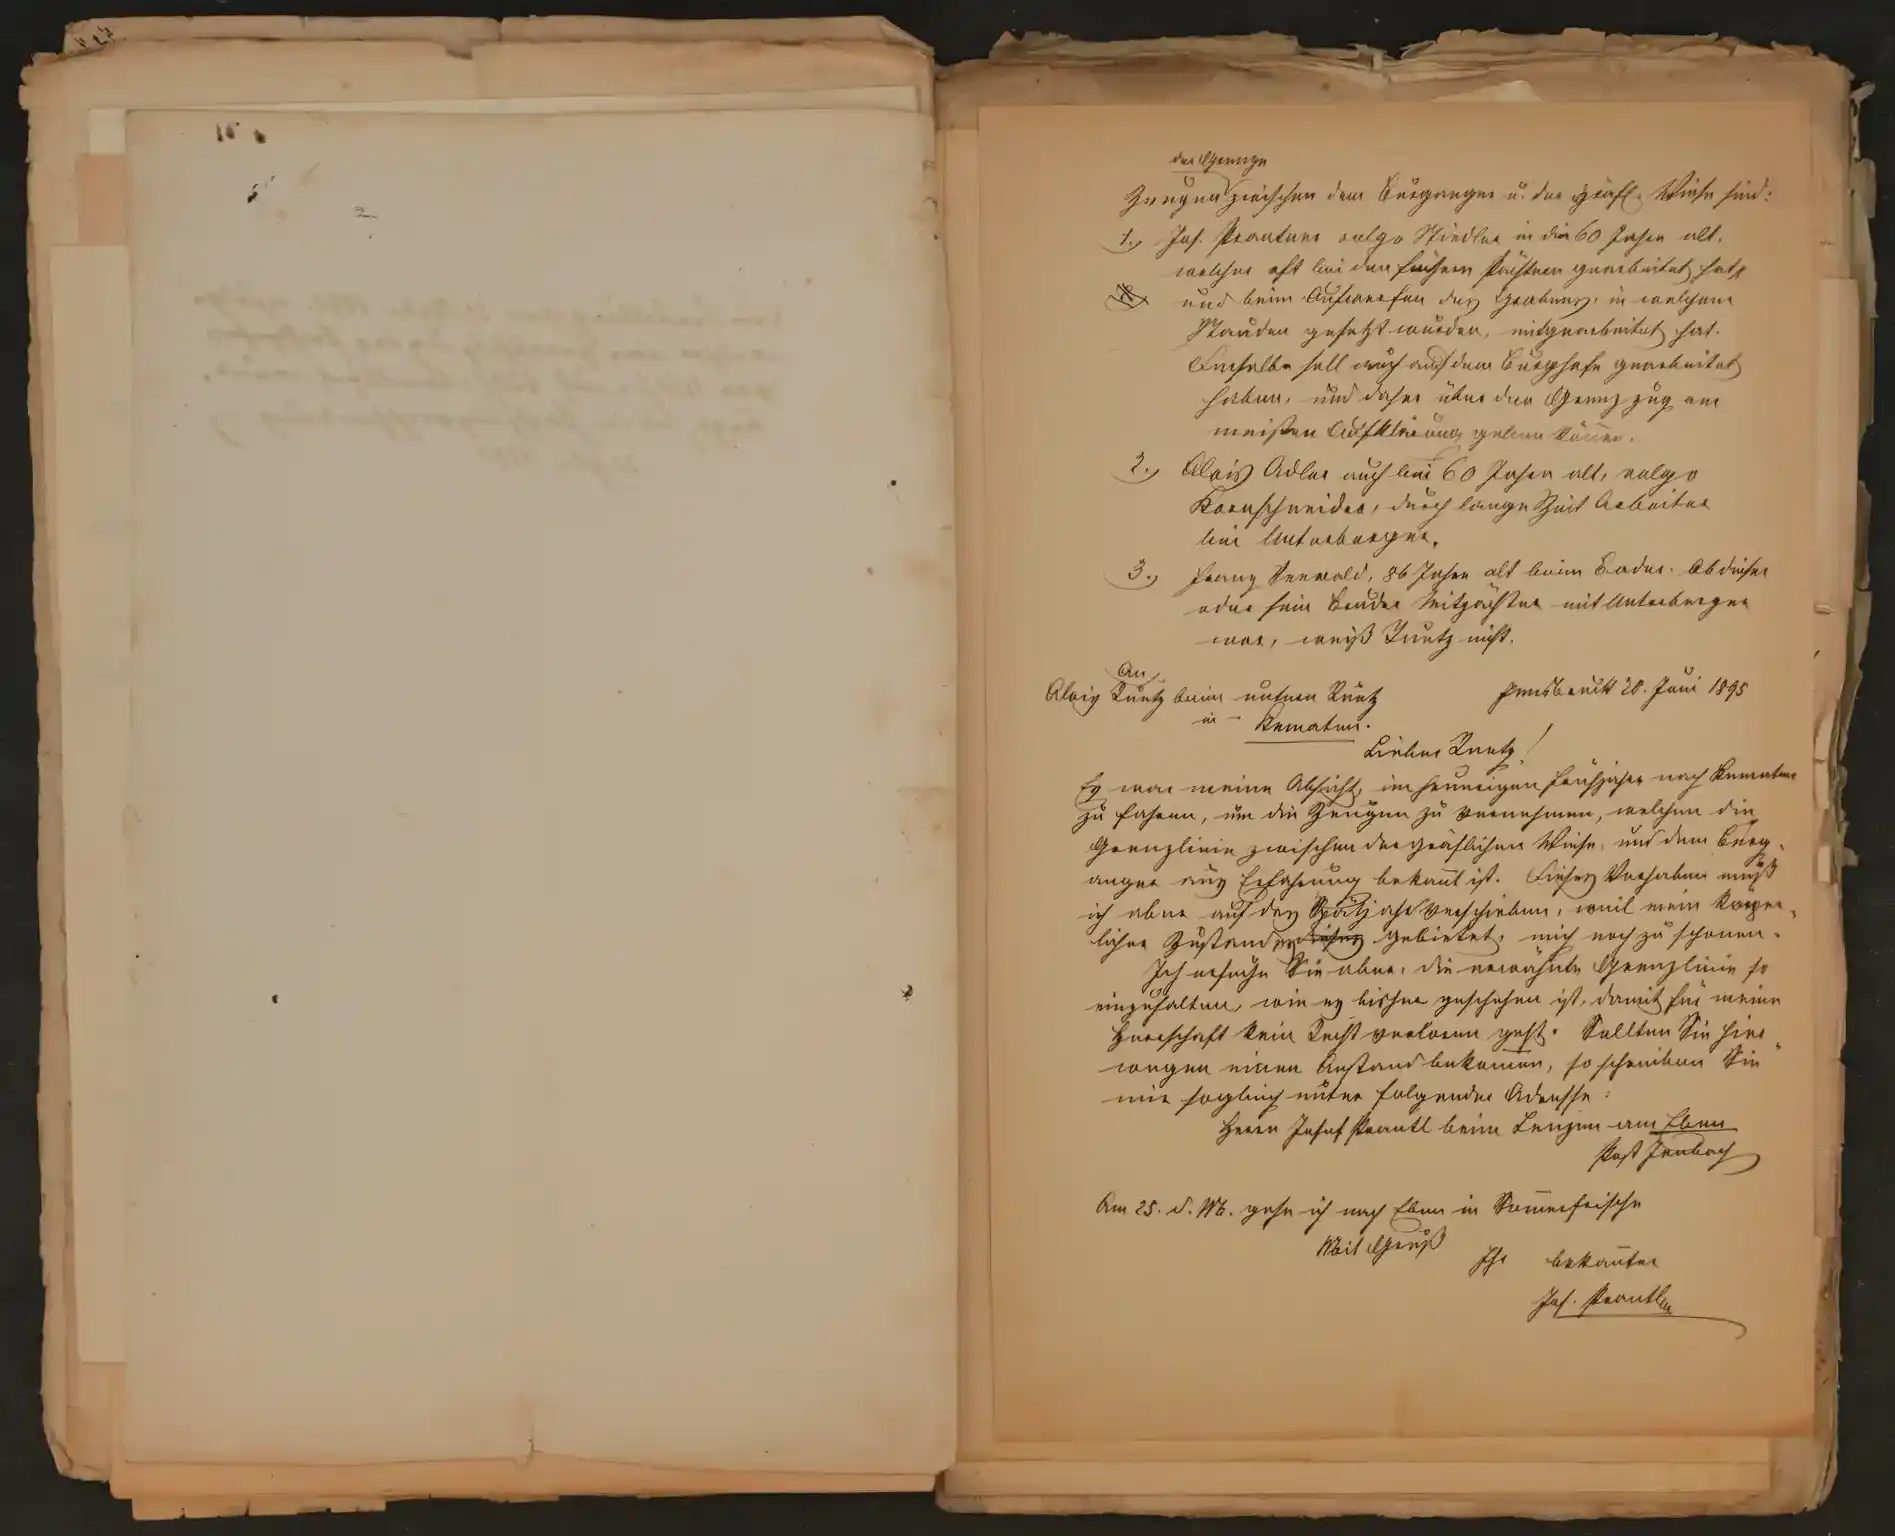 2
der Grenze
Zeugen zwischen dem Burganger u. der gräfl. Wiese sind:
1., Jos. Prantner vulgo Stiedler in die 60 Jahre alt,
welcher oft bei den frühern Pächtern gearbeitet hat,
und beim Aufwerfen des Grabens, in welchem
Stauden gesetzt wurden, mitgearbeitet hat.
Derselbe soll auch auf dem Burghofe gearbeitet
haben, und daher über den Grenzzug am
meisten Aufklärung geben können.
2., Alois Adler auch bei 60 Jahre alt, vulgo
Kornschneider, durch lange Zeit Arbeiter
bei Unterberger.
3., Franz Seewald, 86 Jahre alt beim Bader. Ob dieser
oder sein Bruder Mitpächter mit Unterberger
war, weiß Ruetz nicht.
An
Alois Ruetz beim untern Ruetz
Innsbruck 20. Juni 1895
in Kematen.
Lieber Ruetz!
Es war meine Absicht, im heurigen Frühjahre nach Kematen
zu fahren, um die Zeugen zu vernehmen, welchen die
Grenzlinie zwischen der gräflichen Wiese, und dem Burg-
anger aus Erfahrung bekannt ist. Dieses Vorhaben muß
ich aber auf das Spätjahr verschieben, weil mein körper-
licher Zustand es gebietet, mich noch zu schonen.
Ich ersuche Sie aber, die erwähnte Grenzlinie so
einzuhalten, wie es bisher geschehen ist, damit für meine
Herrschaft kein Recht verloren geht. Sollten Sie hier-
wegen einen Anstand bekommen, so schreiben Sie
mir sogleich unter folgender Adresse:
Herrn Josef Prantl beim Lenzen am Eben
Post Jenbach
Am 25. d. M. gehe ich nach Eben in Sommerfrische
Mit Gruß
Ihr bekannter
Jos. Prantl